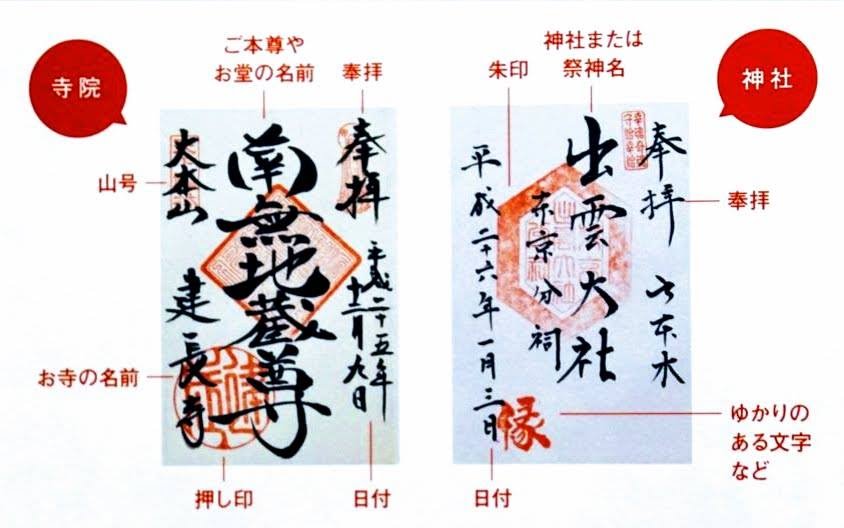 寺院
ご本尊や
お堂の名前
奉拝
山号
お寺の名前
押し印
日付
奉拝
平成二十五年
十二月九日
南無地蔵尊
大本山
建長寺
神社
神社または
祭神名
朱印
奉拝
ゆかりの
ある文字
など
日付
奉拝
出雲大社
東京分祠
平成二十六年一月三日
縁